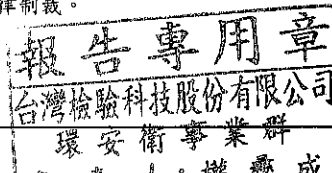 律制裁。
報告專用章
台灣檢驗科技股份有限公司
環安衛事業群